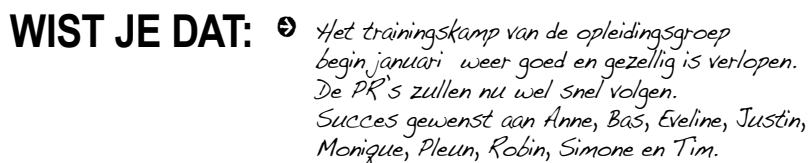 WIST JE DAT: Het trainingskamp van de opleidingsgroep
begin januari weer goed en gezellig is verlopen.
De PR's zullen nu wel snel volgen.
Succes gewenst aan Anne, Bas, Eveline, Justin,
Monique, Pleun, Robin, Simone en Tim.